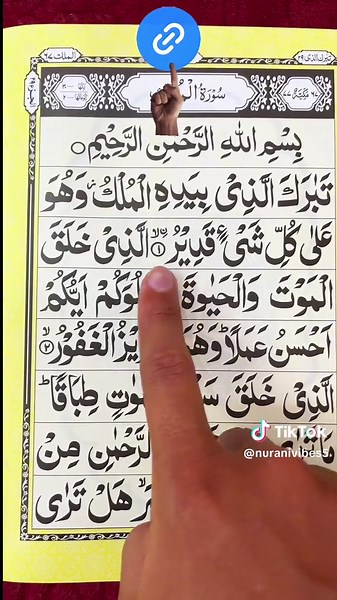 الملك ٦٧
تبرك الذی ٢٩
سُوْرَةُ
بِسْمِ اللهِ الرَّحْمٰنِ الرَّحِيْمِ
تَبٰرَكَ الَّذِيْ بِيَدِهِ الْمُلْكُ وَهُوَ
عَلٰى كُلِّ شَيْءٍ قَدِيْرُ ۙ ١ الَّذِيْ خَلَقَ
الْمَوْتَ وَالْحَيٰوةَ لُوَكُمْ اَيُّكُمْ
اَحْسَنُ عَمَلًا ؕ وَهُوَ يْزُ الْغَفُوْرُ ۙ ٢
الَّذِيْ خَلَقَ سَ وٰتٍ طِبَاقًا ؕ
الرَّحْمٰنِ مِنْ
هَلْ تَرٰى
TikTok
@nuranivibes5